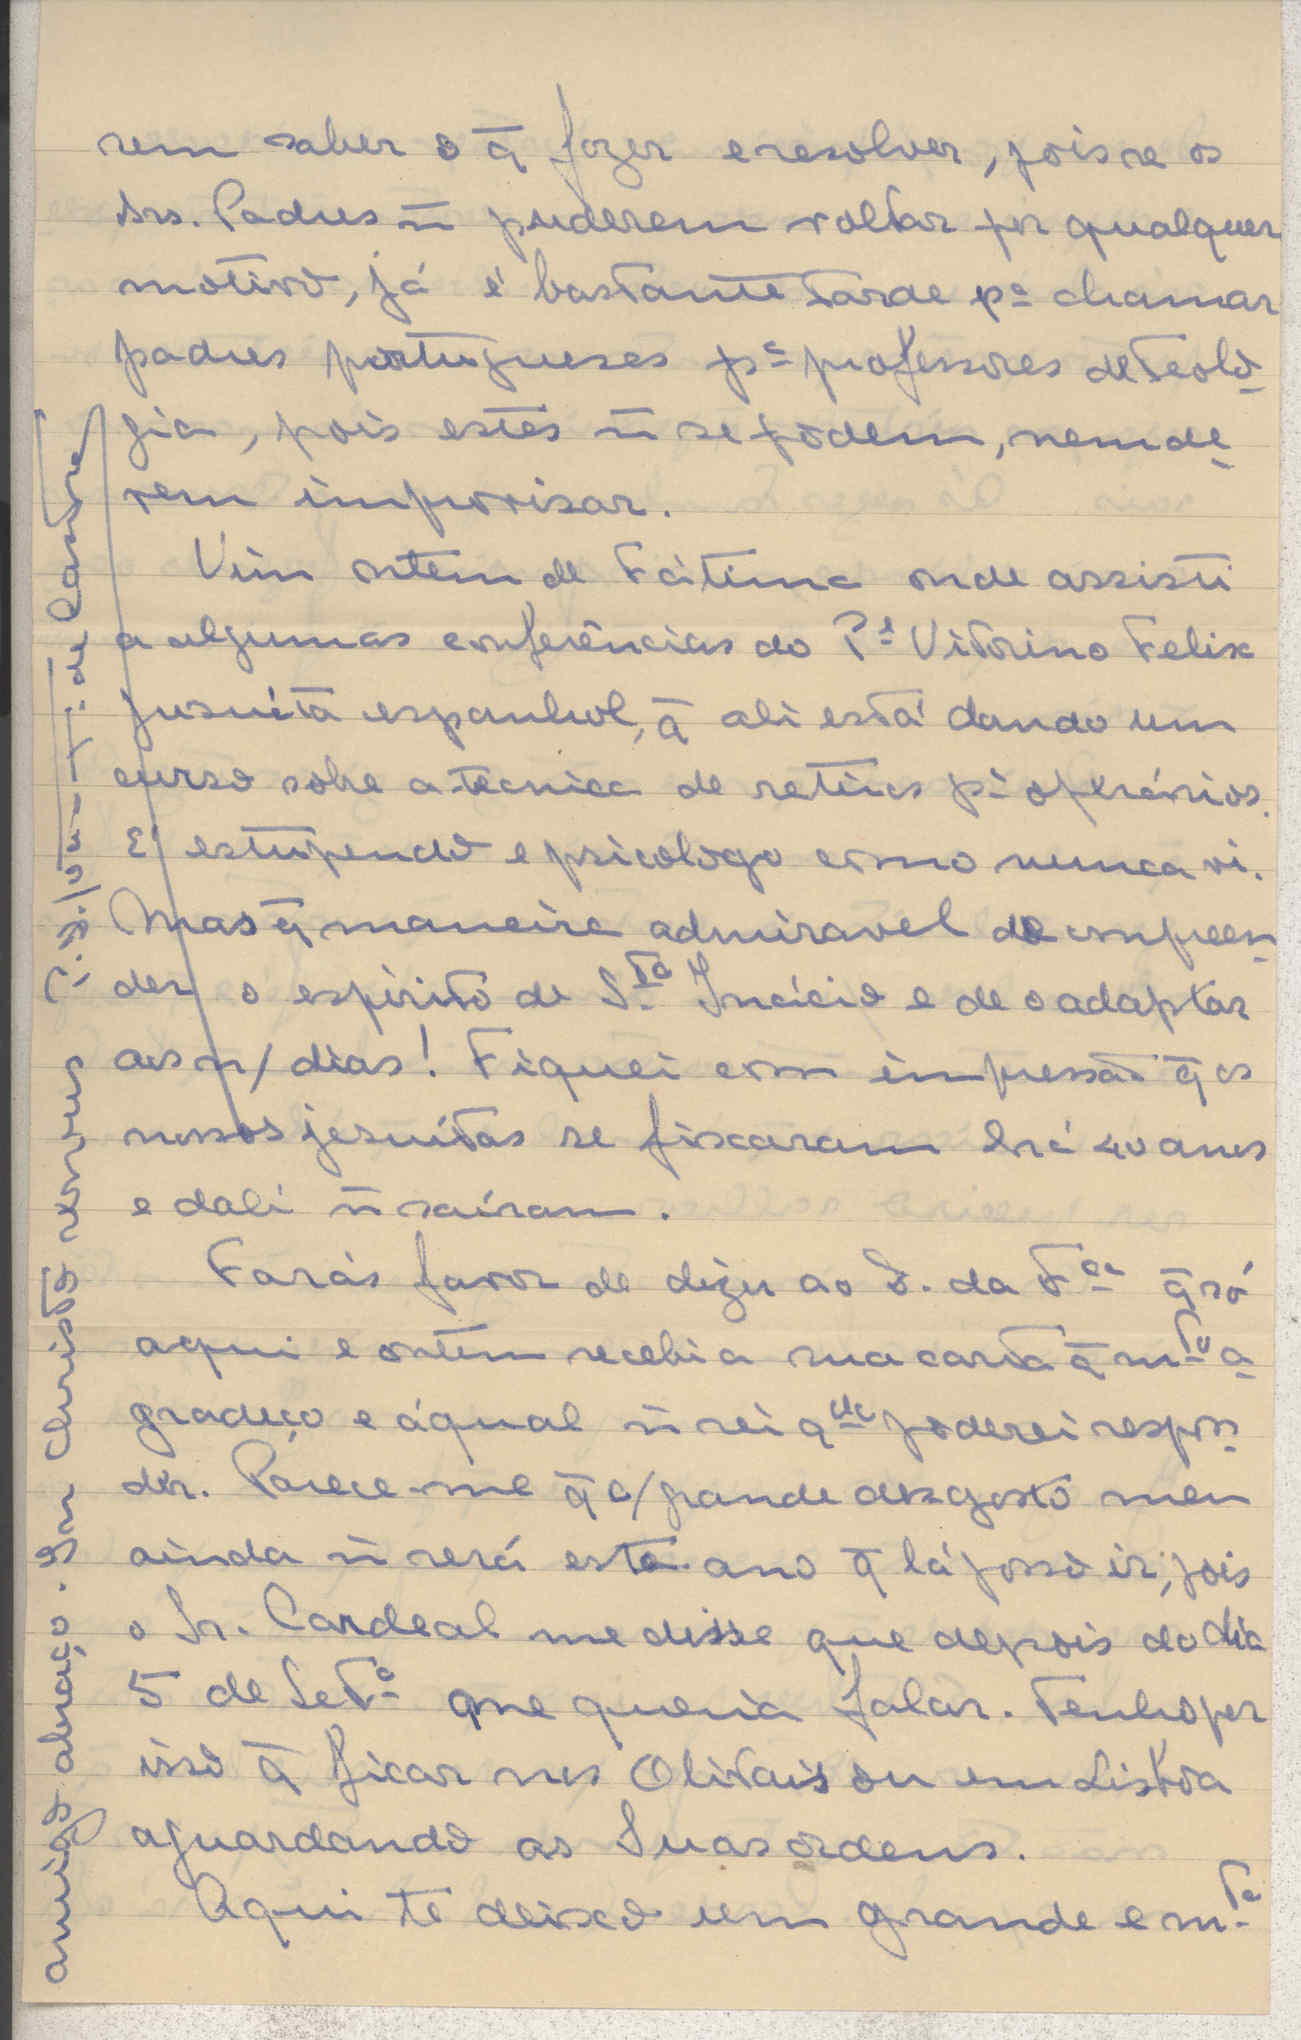 rem saber o q̄ fazer e resolver, pois se os
Srs. Padres ñ puderem voltar por qualquer
motivo, já é bastante tarde pª chamar
padres portugueses pª professores de Teolo-
gia, pois estes ñ se podem, nem de-
vem improvisar.
Vim ontem de Fátima onde assisti
a algumas conferências do Pᵉ Vitorino Felix
jesuíta espanhol, q̄ ali está dando um
curso sobre a tecnica de retiros pª operários.
É estupendo e psicologo como nunca vi.
Mas q̄ maneira admiravel de compreen-
der o espírito de S.ᵗᵒ Inácio e de o adaptar
aos n/ dias! Fiquei com impressão q̄ os
nossos jesuítas se fixaram há 40 anos
e dali ñ saíram.
Farás favor de dizer ao D. da Fᶜᵃ q̄ só
aqui e ontem recebi a sua carta q̄ m.ᵗᵒ a-
gradeço e áqual ñ sei q.ᵈᵒ poderei respon-
der. Parece-me q̄ c/ grande desgosto meu
ainda ñ será este ano q̄ lá posso ir, pois
o Sr. Cardeal me disse que depois do dia
5 de Setº me queria falar. Tenho por
isso q̄ ficar nos Olivais ou em Lisboa
aguardando as Suas ordens.
Aqui te deixo um grande e m.ᵗᵒ
amigo abraço. In Christo servus